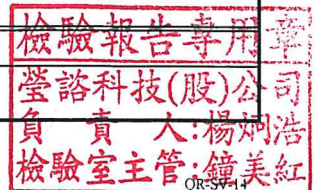 檢驗報告專用章
瑩諮科技(股)公司
負責人:楊炯浩
檢驗室主管:鐘美紅
OR-SV-14